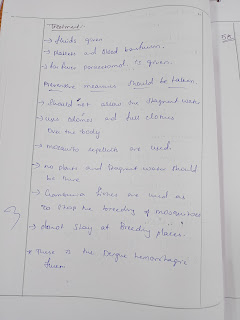 Treatment:-
→ fluids given
→ Platelets and Blood transfusion.
→ for fever paracetamol is given.
Preventive measures should be taken
→ should not allow the stagnant water
→ use odomos and full clothes
over the body
→ mosquito repellents are used.
→ no plants and stagnent water should
be there
→ Gambusia fishes are used as
to stop the breeding of mosquitoes
→ do not stay at Breeding places.
→ There is the Dengue hemorrhagic
fever